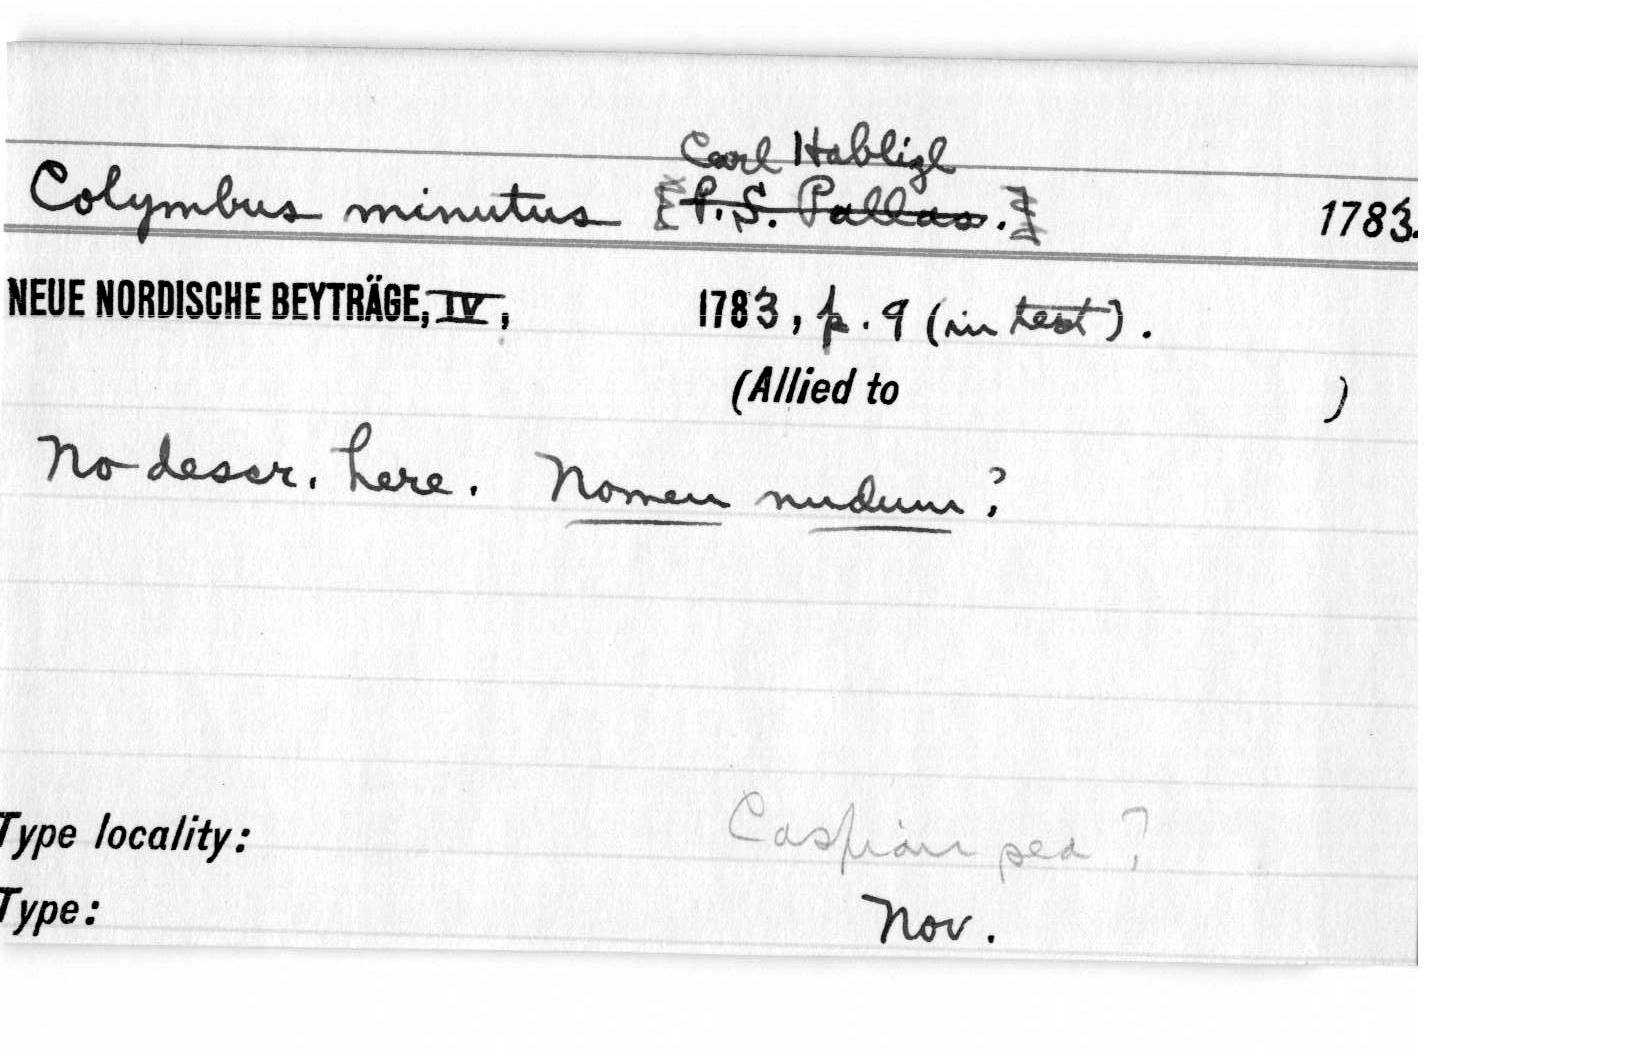 Carl Hablizl
Colymbus minutus [P. S. Pallas.] 1783.
NEUE NORDISCHE BEYTRÄGE, IV, 1783, p. 9 (in text).
(Allied to )
No descr. here. Nomen nudum?
Type locality: Caspian sea?
Type: Nov.